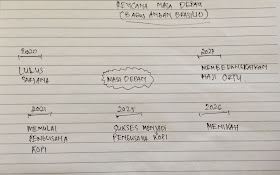 RENCANA MASA DEPAN
(BAGUS
2020
2023
LULUS
SARJANA
MASA DEPAN
MEMBERANGKATKAN
HAJI ORTU
2021
2025
2026
MEMULAI
PENGUSAHA
KOPI
SUKSES MENJADI
PENGUSAHA KOPI
MENIKAH